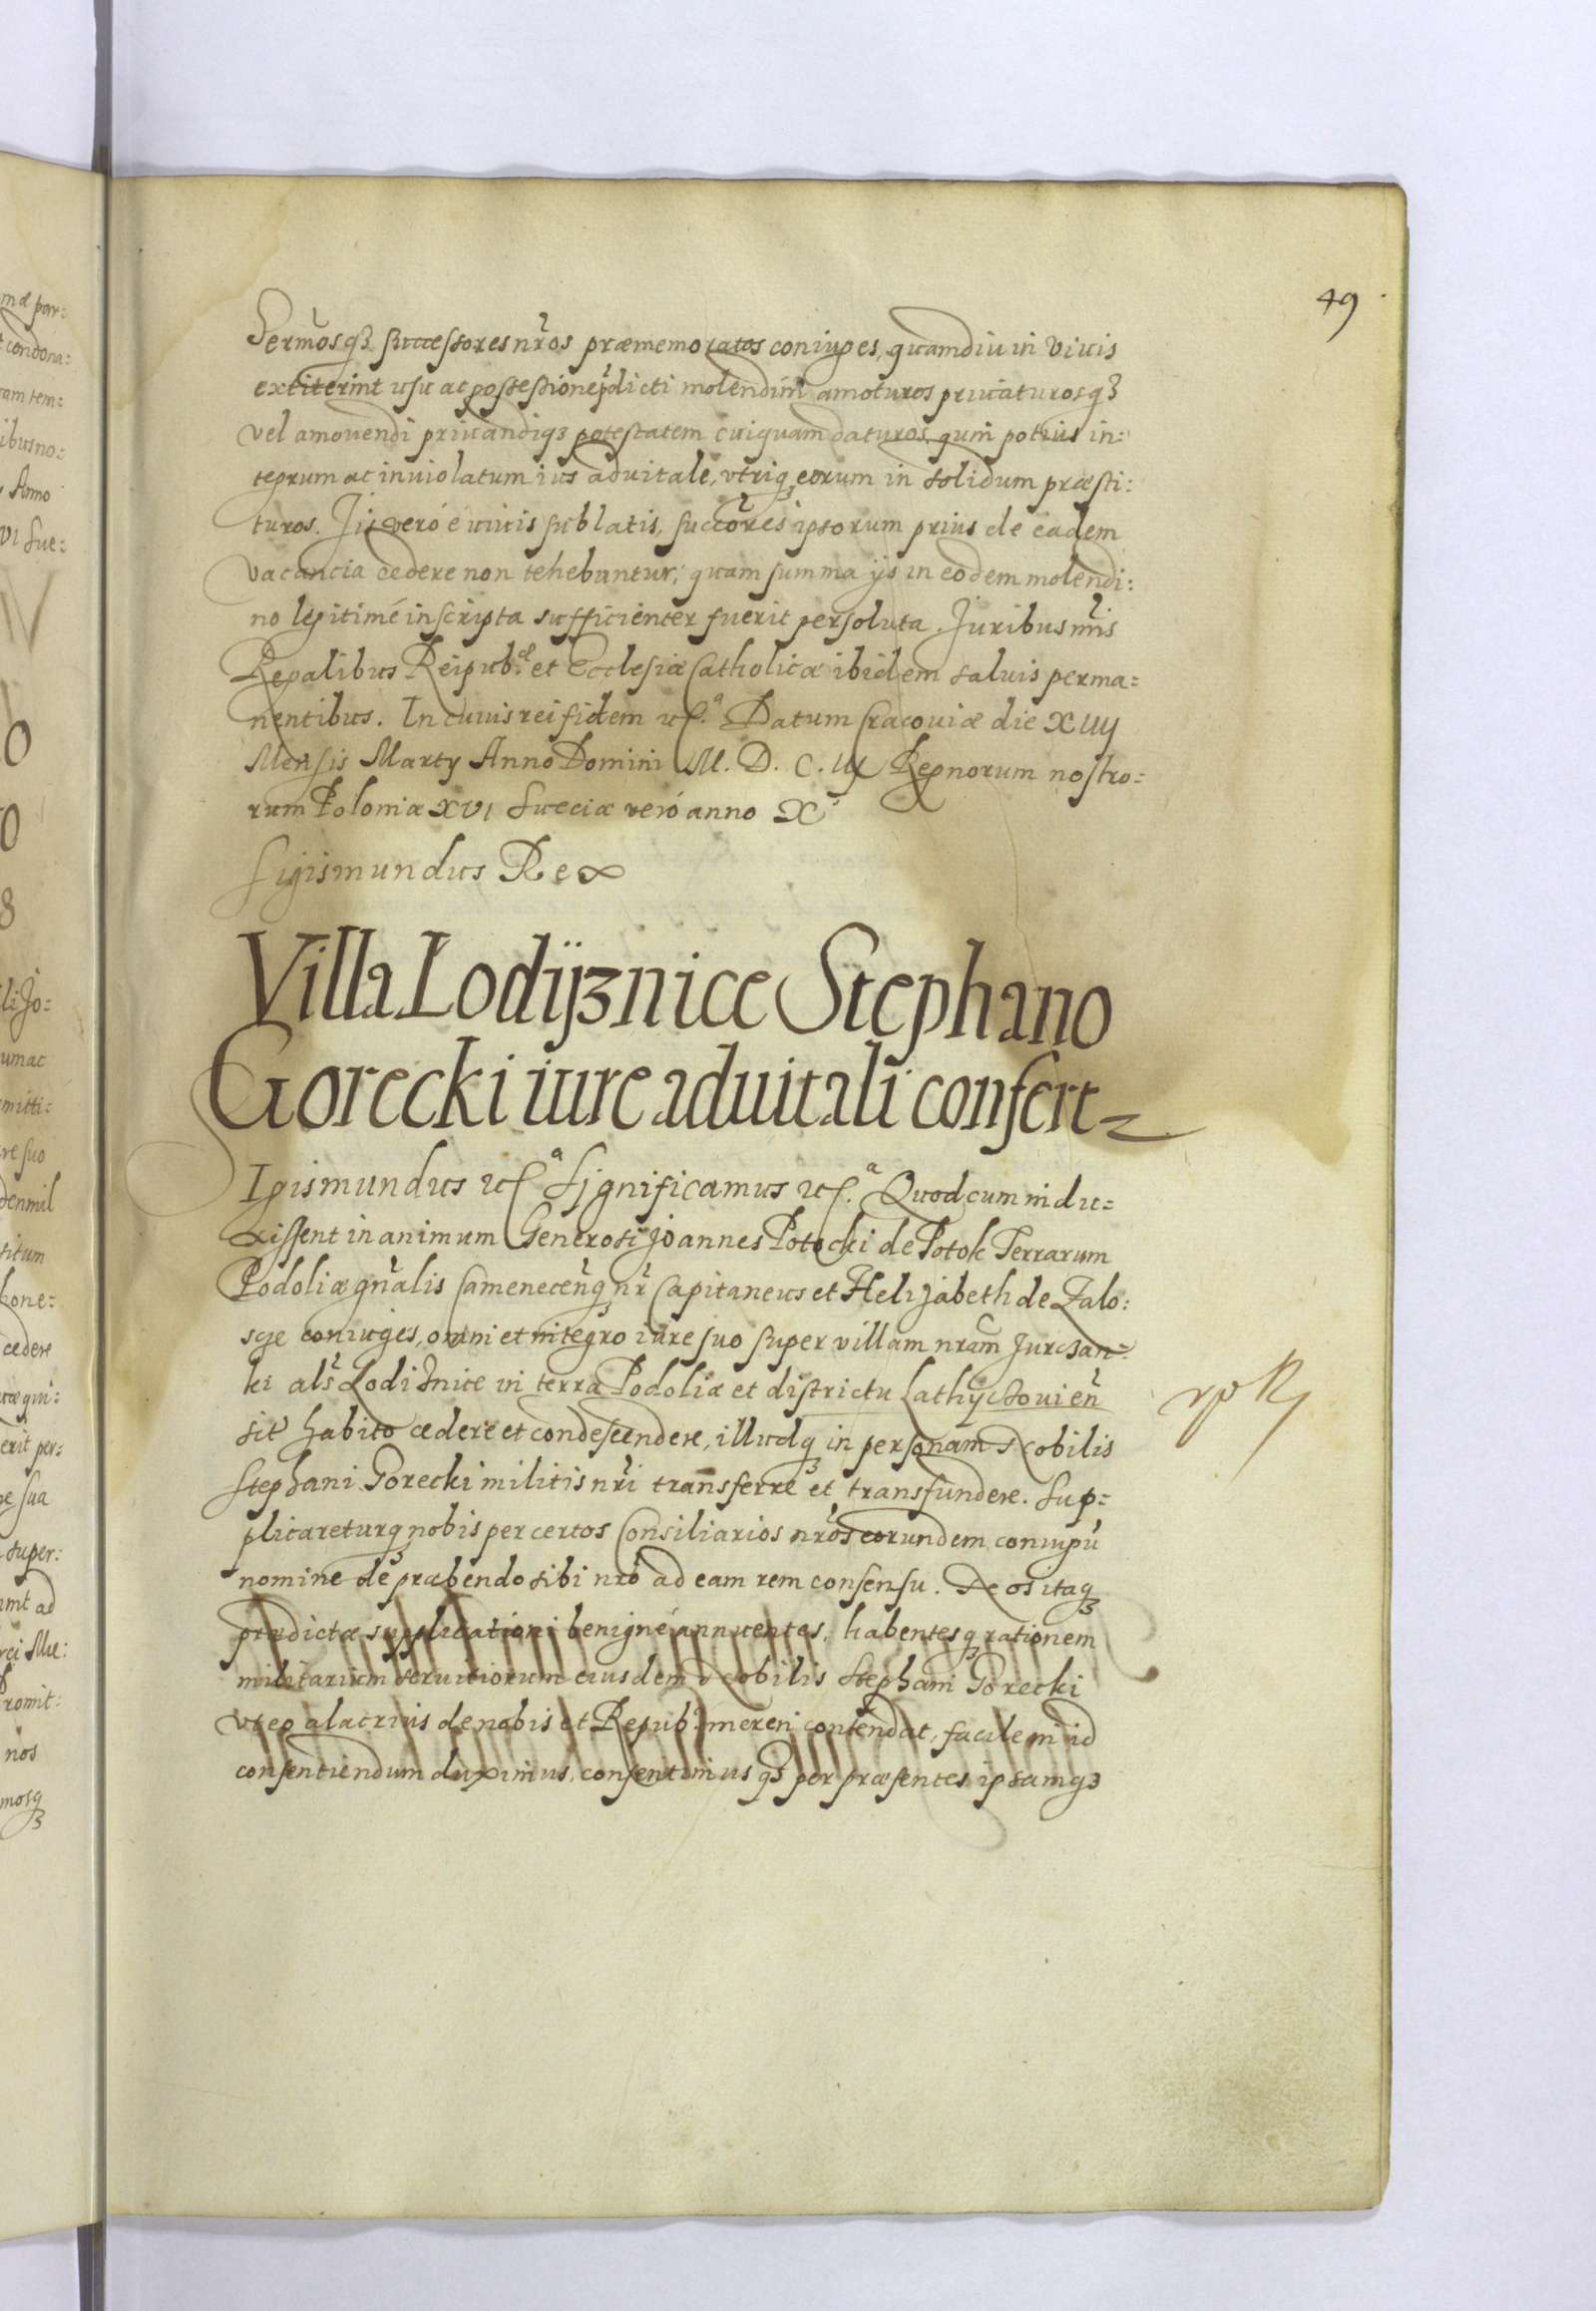 49
Sermosq3 successores nros præmemoratos coniuges, quamdiu in viuis
extiterint usu ac possessione pdicti molendini amoturos priuaturosq3
vel amouendi priuandiq3 potestatem cuiquam daturos, quin potius in:
tegrum ac inuiolatum ius aduitale, vtriq3 eorum in solidum præsti:
turos. Iis veró é viuis sublatis, succores ipsorum prius de eadem
vacancia cedere non tenebuntur, quam summa ijs in eodem molendi:
no legitimé inscripta sufficienter fuerit persoluta. Juribus nris
Regalibus Reipub.æ et Ecclesiæ Catholicæ ibidem saluis perma=
nentibus. In cuius rei fidem etc.a Datum Cracouiæ die XIIIJ
Mensis Martij Anno Domini M. D. C. III Regnorum nostro=
rum Poloniæ XVI Sueciæ veró anno X
Sigismundus Rex
Villa Lodijznice Stephano
Gorecki iure aduitali confert
Igismundus etc.a Significamus etc.a Quod cum indu=
xissent in animum Generosi Joannes Potocki de Potok Terrarum
Podoliæ gnalis Camenecenq3 nr Capitaneus et Helizabeth de Zalo:
sge coniuges, omni et integro iure suo super villam nram Jurczan=
ki als Lodiznice in terra Podoliæ et districtu Lathyczouien
sit habito cedere et condescendere, illudq3 in personam Nobilis
Stephani Gorecki militis nri transferre et transfundere. Sup=
plicareturq3 nobis per certos Consiliarios nros eorundem coniugu
nomine de præbendo sibi nro ad eam rem consensu. Nos itaq3
prædictæ supplicationi benigné annuentes, habentesq3 rationem
militarium seruitiorum eiusdem Nobilis Stephani Gorecki
vt eo alacrius de nobis et Repub. mereri contendat, facile in id
consentiendum duximus, consentimusq3 per præsentes ipsamq3